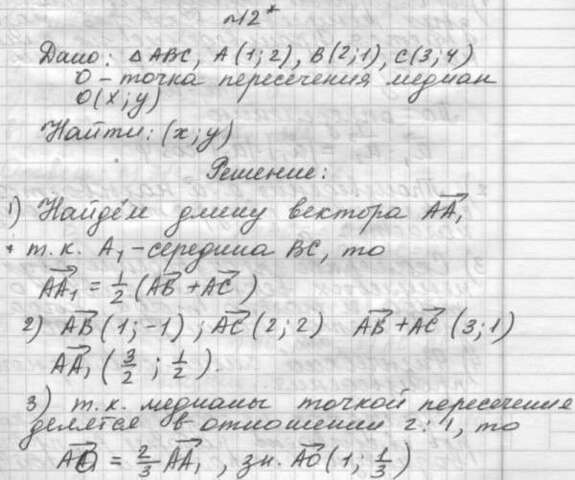 №12*
Дано: △ABC, A(1;2), B(2;1), C(3;4)
O - точка пересечения медиан
O(x;y)
Найти: (x;y)
Решение:
1) Найдём длину вектора AA₁
* т.к. A₁ - середина BC, то
AA₁ = 1/2 (AB + AC)
2) AB (1;-1); AC (2;2) AB + AC (3;1)
AA₁ (3/2; 1/2).
3) т.к. медианы точкой пересечение
делятся в отношении 2:1, то
AO = 2/3 AA₁, зн. AO (1; 1/3)